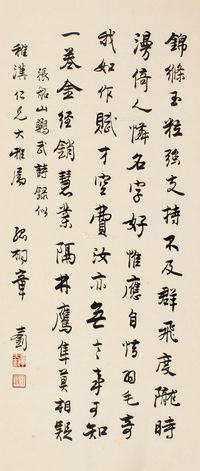 錦絛玉粒強支持不及群飛度隴時
漫倚人憐名字好惟應自惜羽毛奇
我如作賦才空費汝亦無言事可知
一卷金经銷慧業隔林鷹隼莫相疑
張船山鸚武詩錄似
稚漢仁兄大雅屬 孤桐章士釗